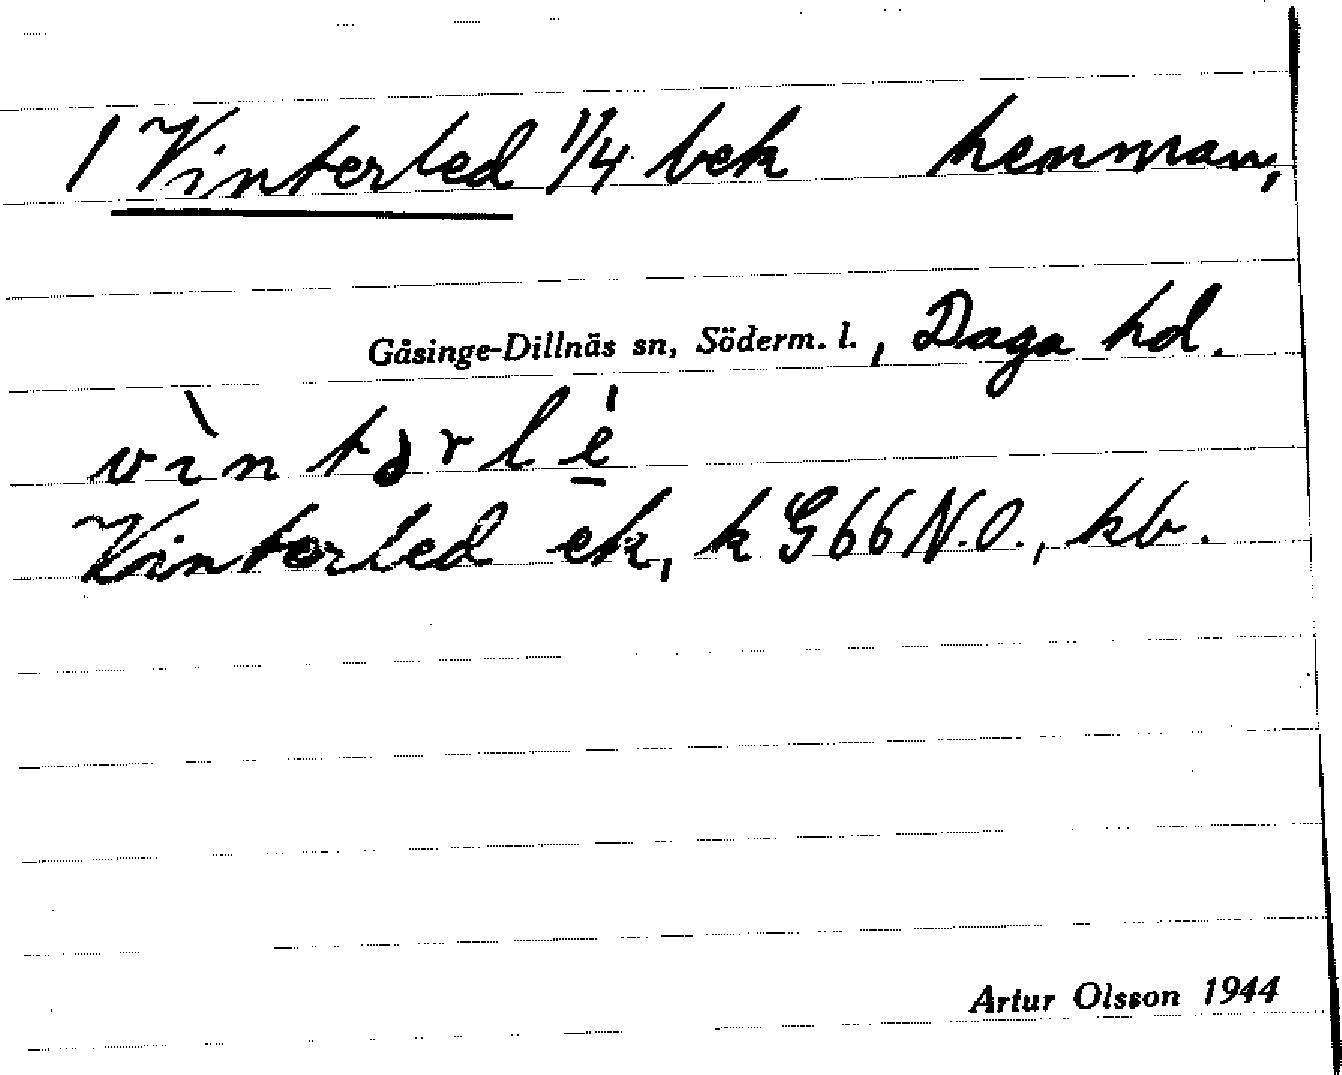 1 Vinterled 1/4 bek hemman,
Gåsinge-Dillnäs sn, Söderm. l., Daga hd.
vìntərlé̠
Vinterled ek, k G66 N.O., kb.
Artur Olsson 1944